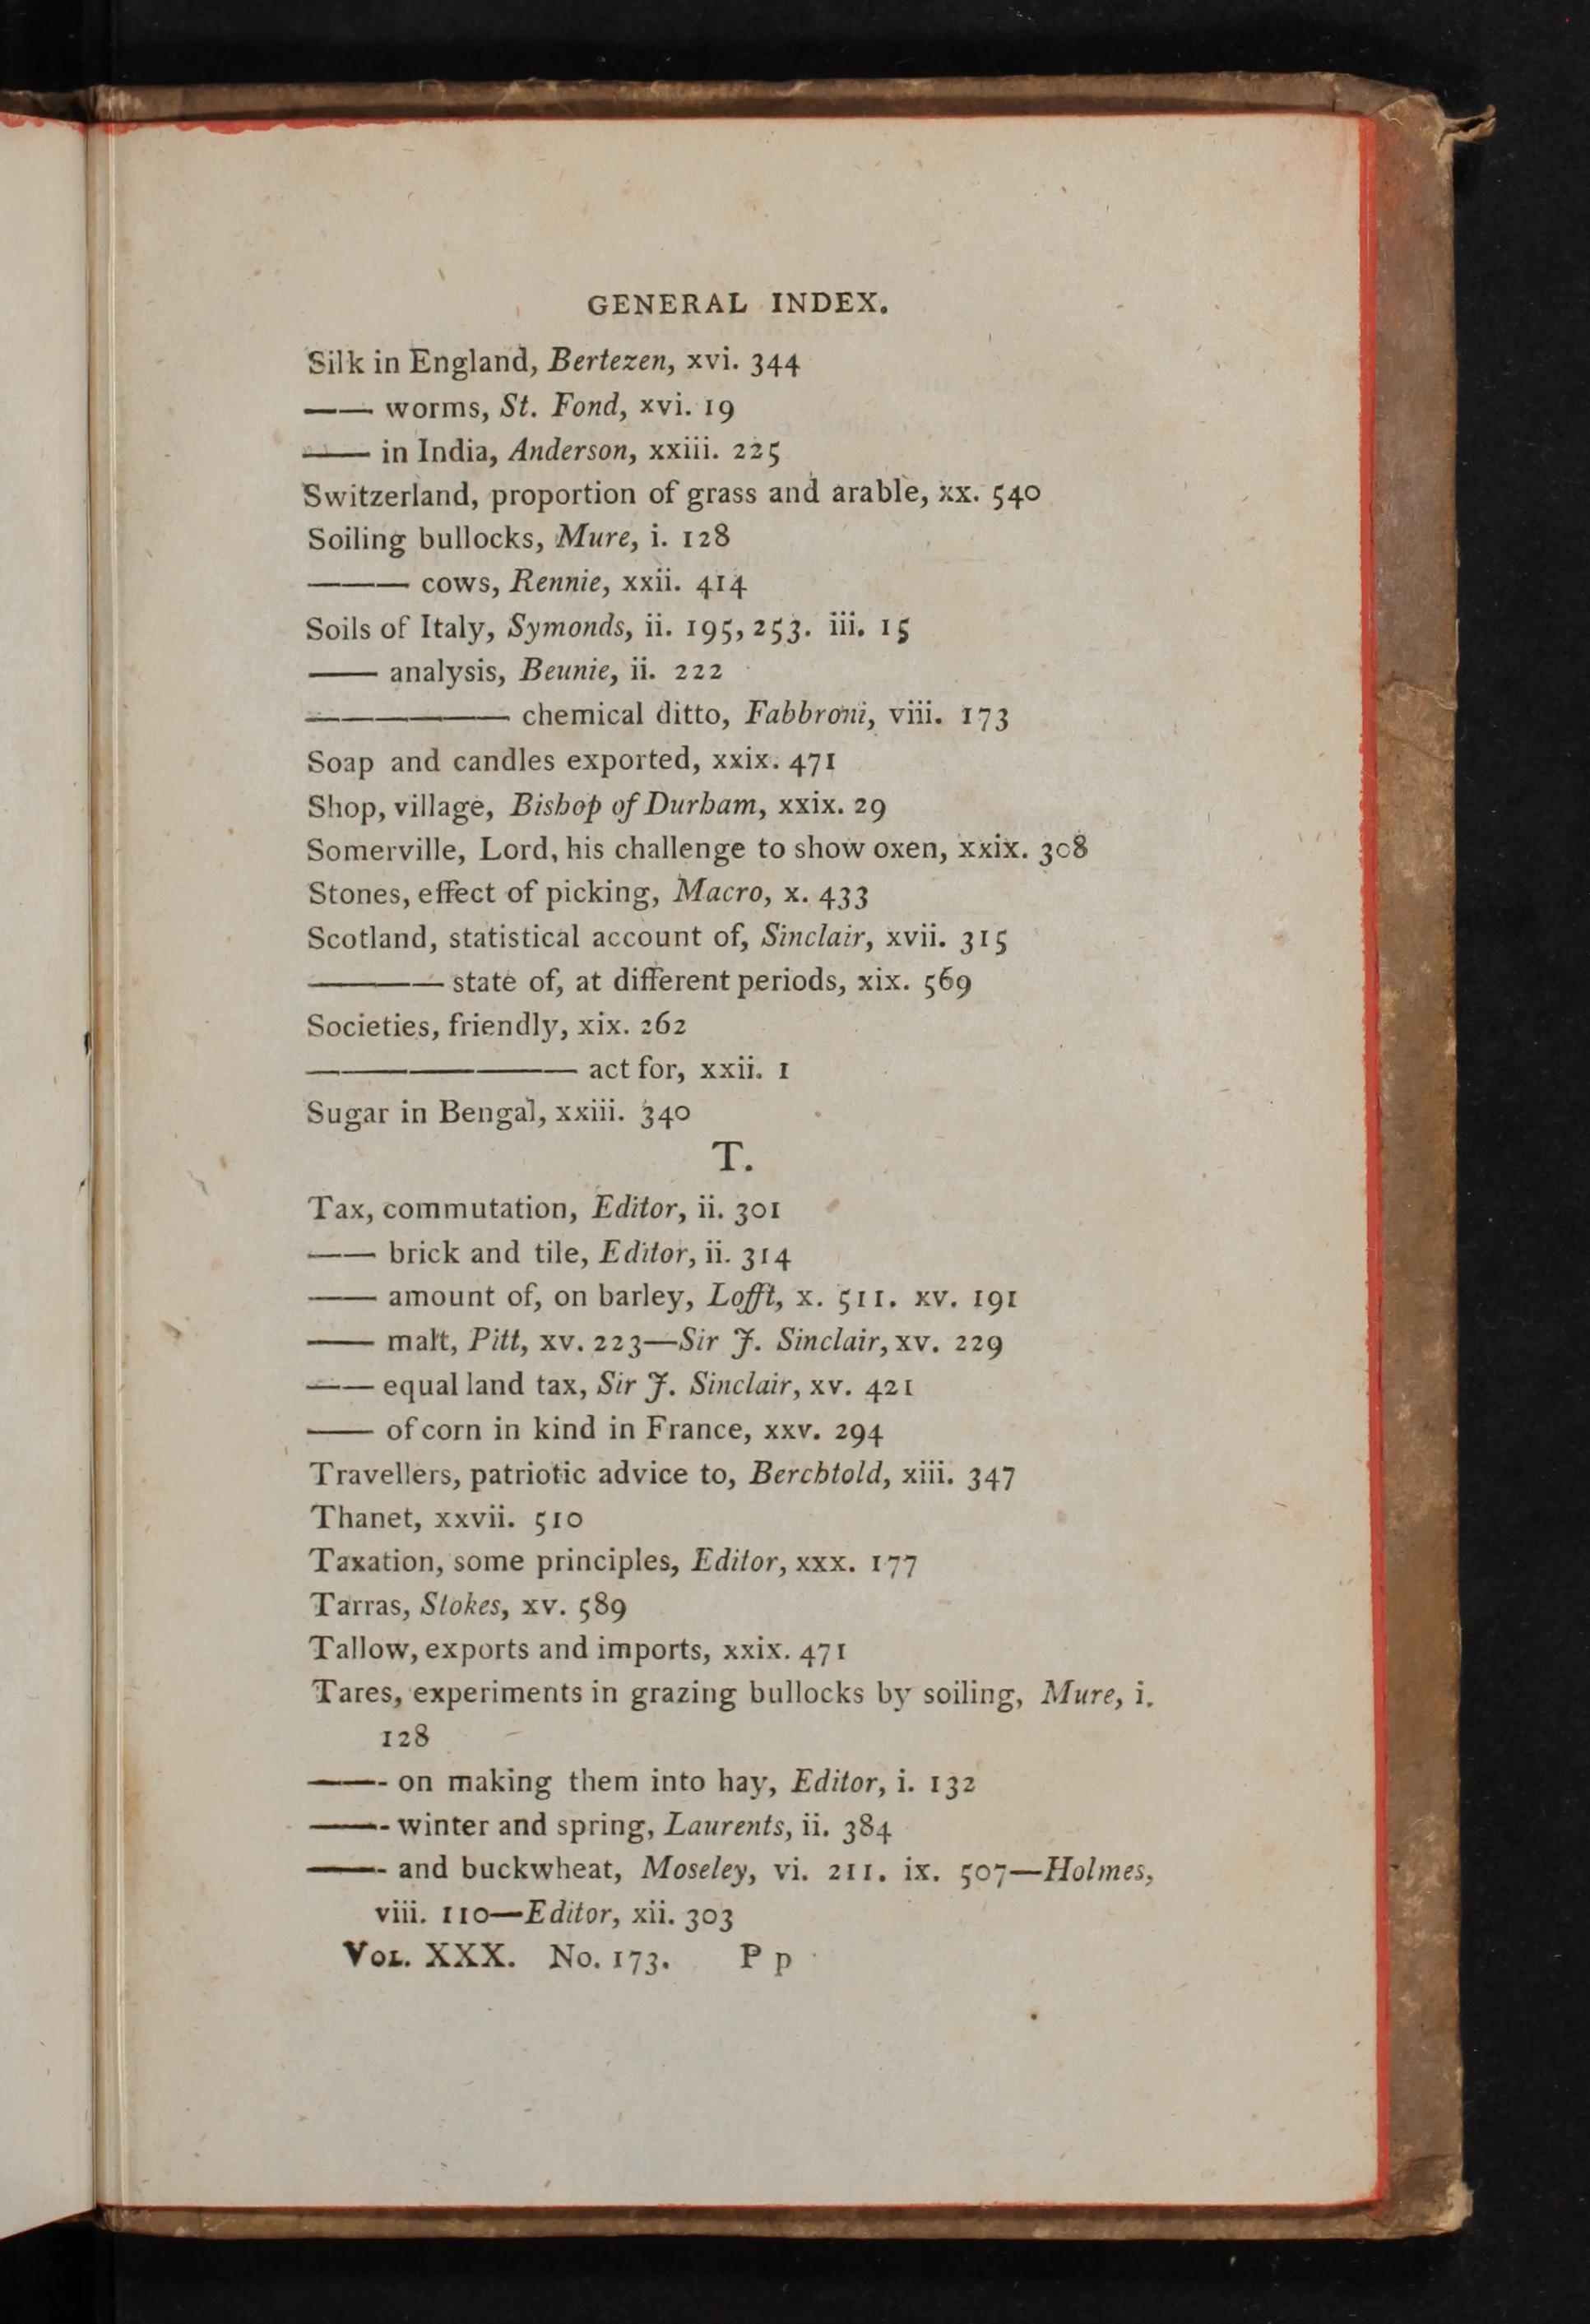 GENERAL INDEX.
Silk in England, Bertezen, xvi. 344
—— worms, St. Fond, xvi. 19
—— in India, Anderson, xxiii. 225
Switzerland, proportion of grass and arable, xx. 540
Soiling bullocks, Mure, i. 128
——— cows, Rennie, xxii. 414
Soils of Italy, Symonds, ii. 195, 253. iii. 15
—— analysis, Beunie, ii. 222
—————— chemical ditto, Fabbroni, viii. 173
Soap and candles exported, xxix. 471
Shop, village, Bishop of Durham, xxix. 29
Somerville, Lord, his challenge to show oxen, xxix. 308
Stones, effect of picking, Macro, x. 433
Scotland, statistical account of, Sinclair, xvii. 315
———— state of, at different periods, xix. 569
Societies, friendly, xix. 262
———————— act for, xxii. 1
Sugar in Bengal, xxiii. 340
T.
Tax, commutation, Editor, ii. 301
—— brick and tile, Editor, ii. 314
—— amount of, on barley, Lofft, x. 511. xv. 191
—— malt, Pitt, xv. 223—Sir J. Sinclair, xv. 229
—— equal land tax, Sir J. Sinclair, xv. 421
—— of corn in kind in France, xxv. 294
Travellers, patriotic advice to, Berchtold, xiii. 347
Thanet, xxvii. 510
Taxation, some principles, Editor, xxx. 177
Tarras, Stokes, xv. 589
Tallow, exports and imports, xxix. 471
Tares, experiments in grazing bullocks by soiling, Mure, i.
128
——- on making them into hay, Editor, i. 132
——- winter and spring, Laurents, ii. 384
——- and buckwheat, Moseley, vi. 211. ix. 507—Holmes,
viii. 110—Editor, xii. 303
VOL. XXX. No. 173. P p